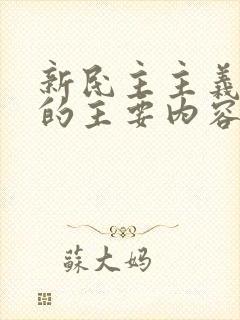 新民主主義
的主要内容
蘇大妈